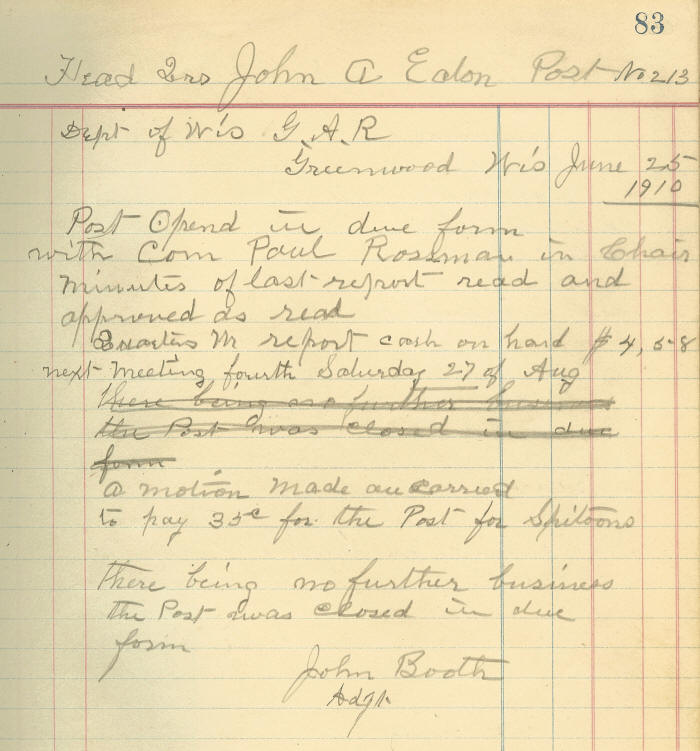 83
Head Qrs John A Eaton Post No 213
Dept of Wis G. A. R
Greenwood Wis June 25
1910
Post Opend in due form
with Com Paul Rossman in Chair
minutes of last report read and
approved as read
Quarters Mr report cash on hand $ 4,58
next Meeting fourth Saturday 27 of Aug
there being no further business
the Post was closed in due
form
a motion made an carried
to pay 35c for the Post for Spitoons
there being no further business
the Post was closed in due
form
John Booth
Adgt